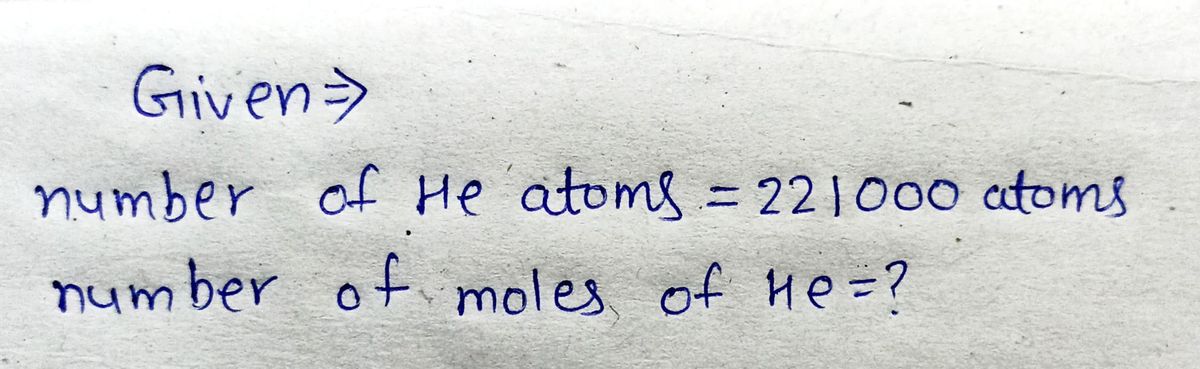 Given⇒
number of He atoms = 221000 atoms
number of moles of He=?